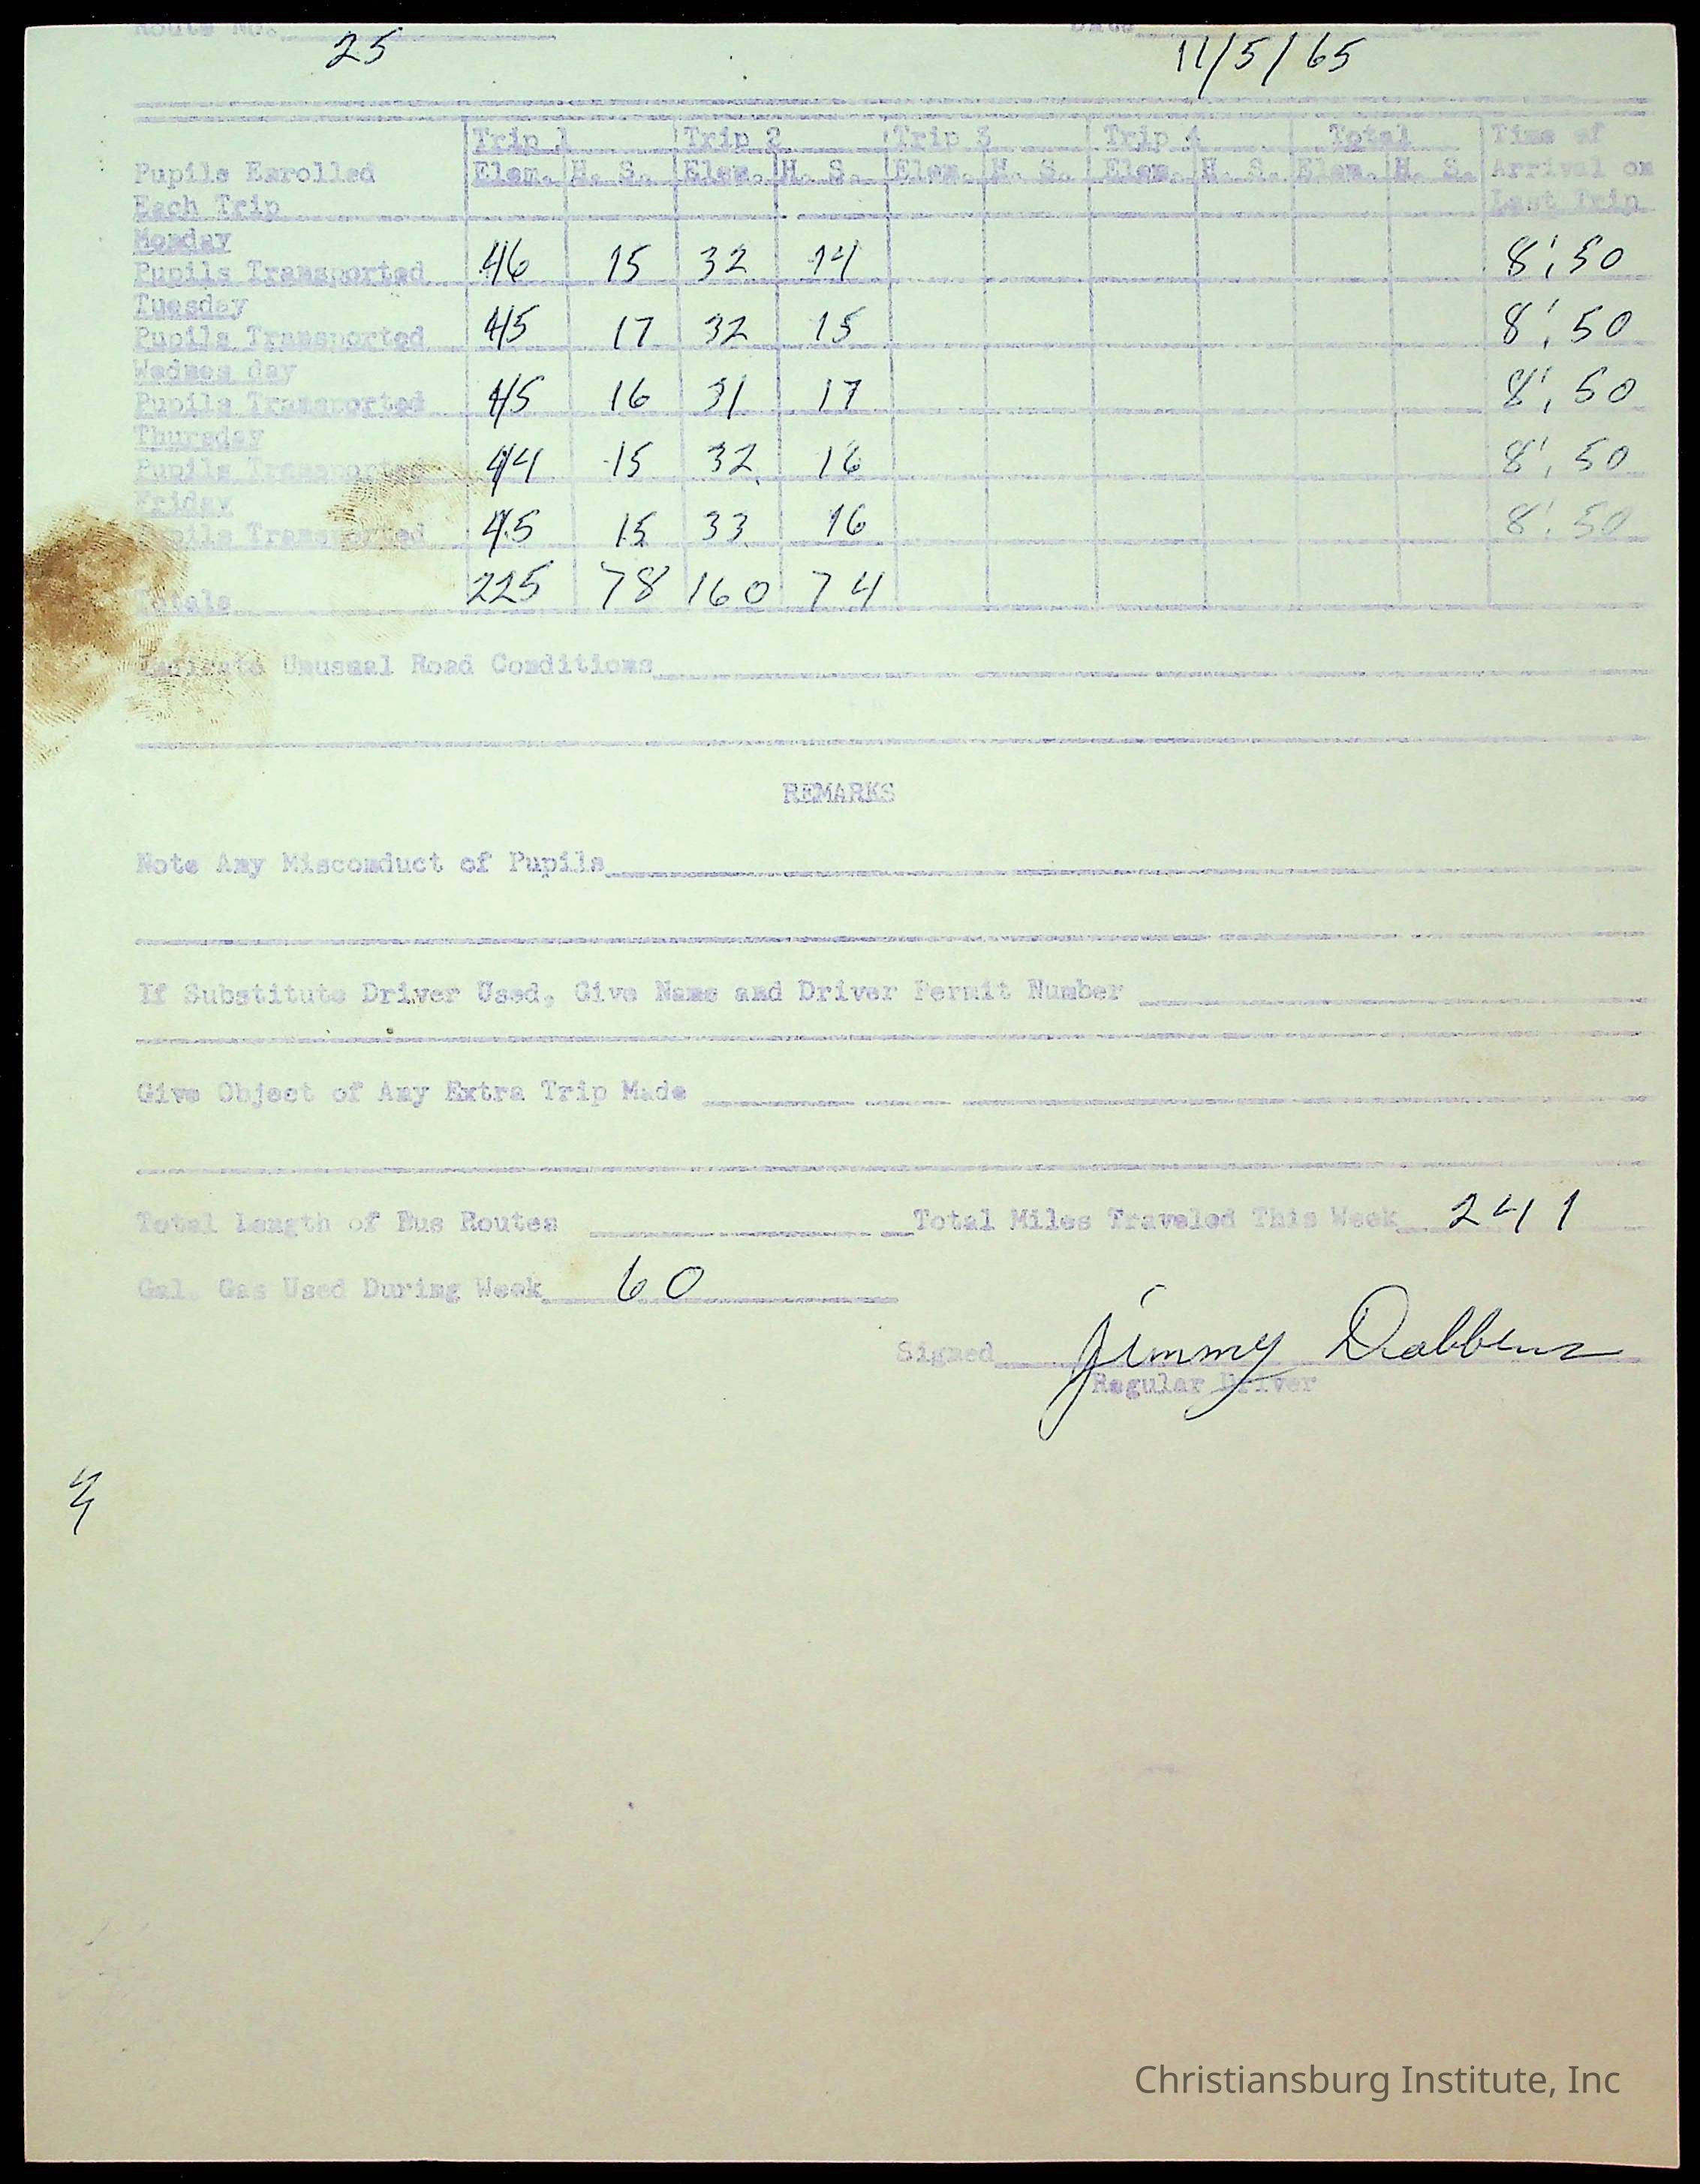 Route No. 25 Date 11/5/65 19
Trip 1 Trip 2 Trip 3 Trip 4 Total Time of
Pupils Enrolled Elem. H. S. Elem. H. S. Elem. H. S. Elem. H. S. Elem. H. S. Arrival on
Each Trip Last Trip
Monday
Pupils Transported 46 15 32 14 8:50
Tuesday
Pupils Transported 45 17 32 15 8:50
Wednes day
Pupils Transported 45 16 31 17 8:50
Thursday
Pupils Transported 44 15 32 16 8:50
Friday
Pupils Transported 45 15 33 16 8:50
Totals 225 78 160 74
Indicate Unusual Road Conditions
REMARKS
Note Any Misconduct of Pupils
If Substitute Driver Used, Give Name and Driver Permit Number
Give Object of Any Extra Trip Made
Total Length of Bus Routes Total Miles Traveled This Week 241
Gal. Gas Used During Week 60
Signed Jimmy Dabbens
Regular Driver
Christiansburg Institute, Inc